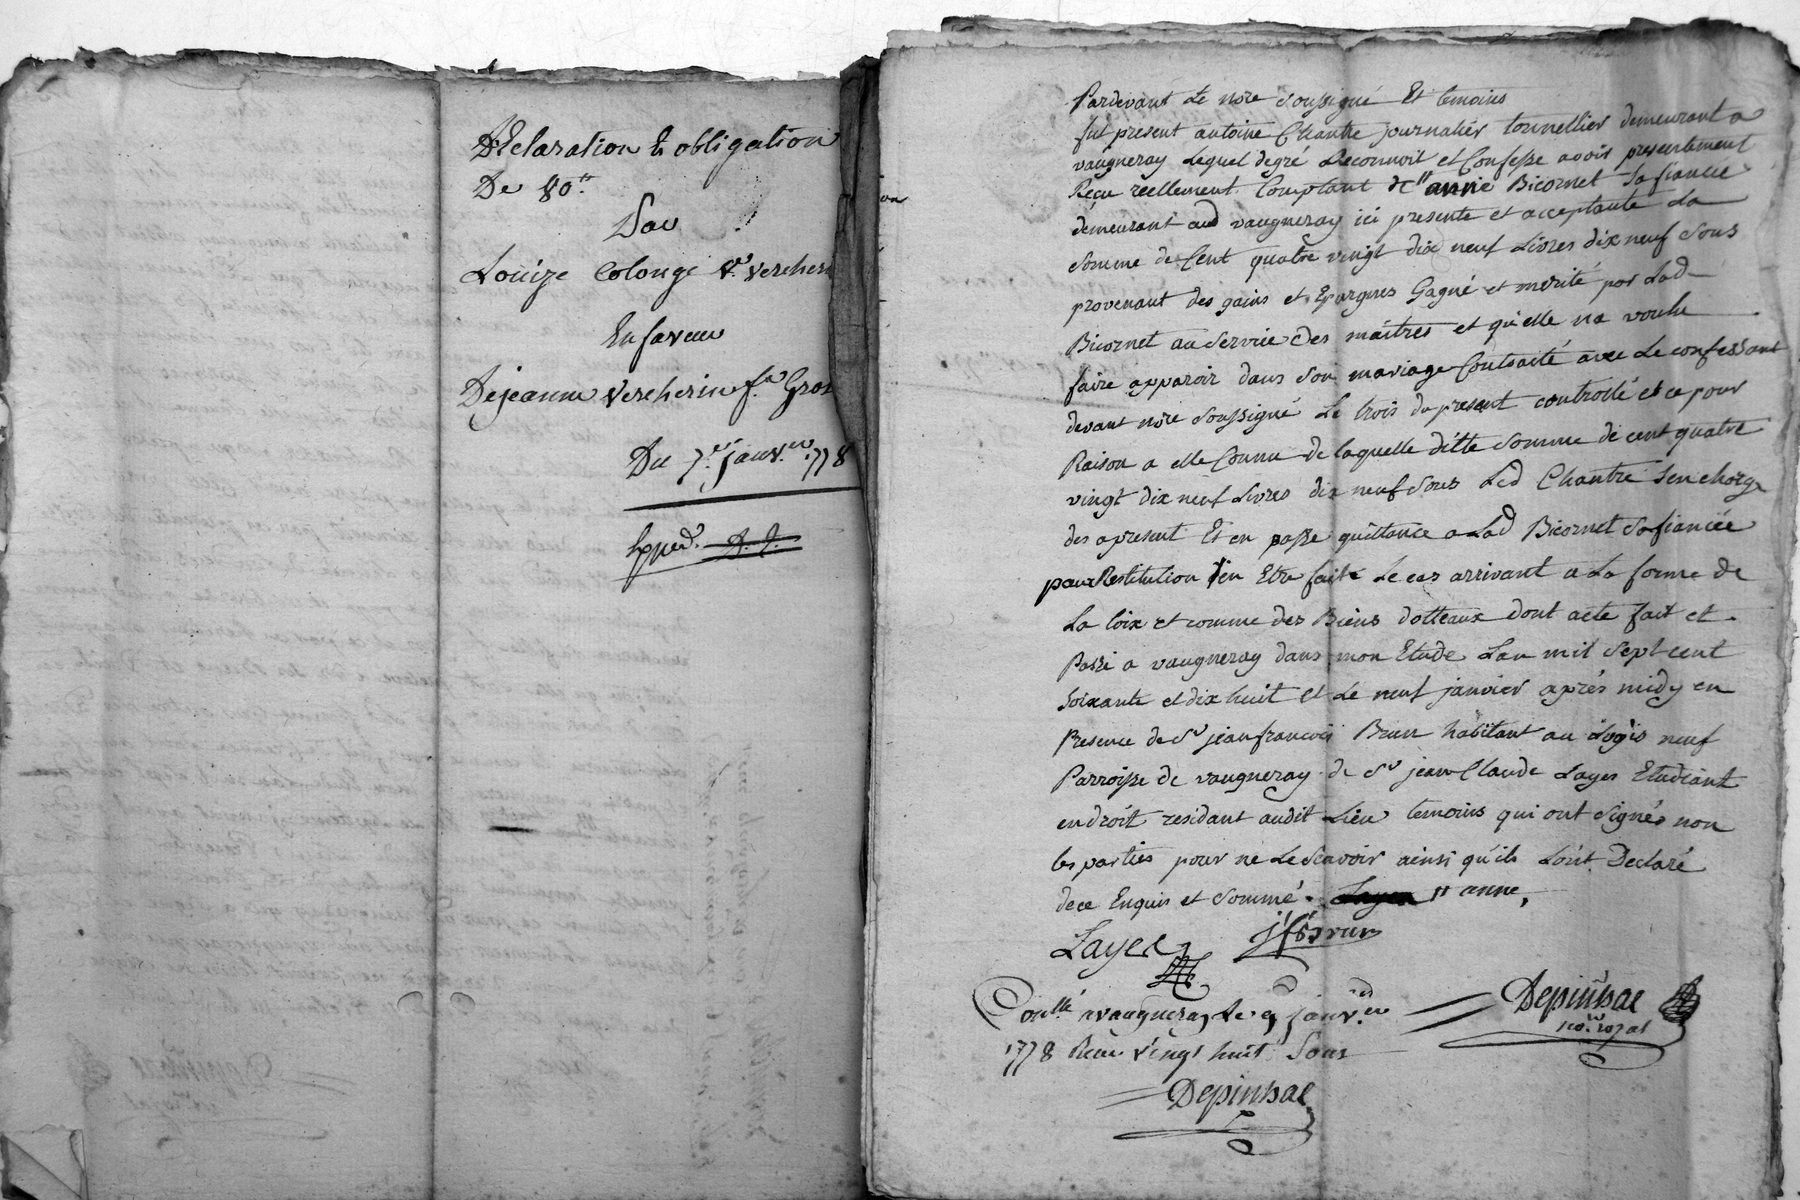 Déclaration Et obligation
De 80.tt
Par
Loüize Colonge V.e Vercherin
En faveur
De jeanne Vercherin f.e Gros
Du 7.e janv.er 1778
Exped.
Pardevant Le nore Soussigné Et temoins
fut present antoine Chantre journalier tonnellier demeurant a
vaugneray Lequel degré Reconnoit et Confesse avoir presentement
Reçu reellement Comptant de " annie Bicornet Sa fiancée
demeurant aud vaugneray ici presente et acceptante La
Somme de Cent quatre vingt dix neuf Livres dix neuf Sous
provenant des gains et Epargnes Gagné et merité par Lad
Bicornet au Service des maitres et qu'elle na voulu
faire apparoir dans Son mariage Contracté avec Le confessant
devant nore Soussigné Le trois du present controllé et ce pour
Raison a elle Connu de laquelle ditte Somme de cent quatre
vingt dix neuf Livres dix neuf Sous Led Chantre Sen charge
des apresent Et en passe quittance a Lad Bicornet Sa fiancée
pour Restitution en Etre faite Le cas arrivant a La forme de
La loix et comme des Biens dotteaux dont acte fait et
Passé a vaugneray dans mon Etude Lan mil Sept cent
Soixante et dix huit et Le neuf janvier aprés midy en
Presence de Sr jean francois Brun habitant au Logis neuf
Parroisse de vaugneray de Sr jean Claude Layes Etudiant
en droit residant audit Lieu temoins qui ont Signés non
les parties pour ne Le Scavoir ainsi qu'ils Lont Declaré
de ce Enquis et Sommé. " anne,
Layes jfBrun
Conllé a vaugneray Le 9 janv.er Depinhac
no.re royal
1778 Reçu vingt huit Sous
Depinhac